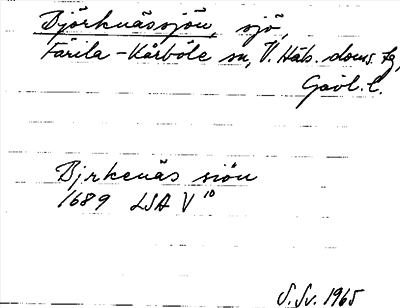 Björknässjön, sjö,
Färila-Kårböle sn, V. Häls. doms. tg,
Gävl. l.
Bjrkenäs siön
1689 LSA V 10
S. Sv. 1965